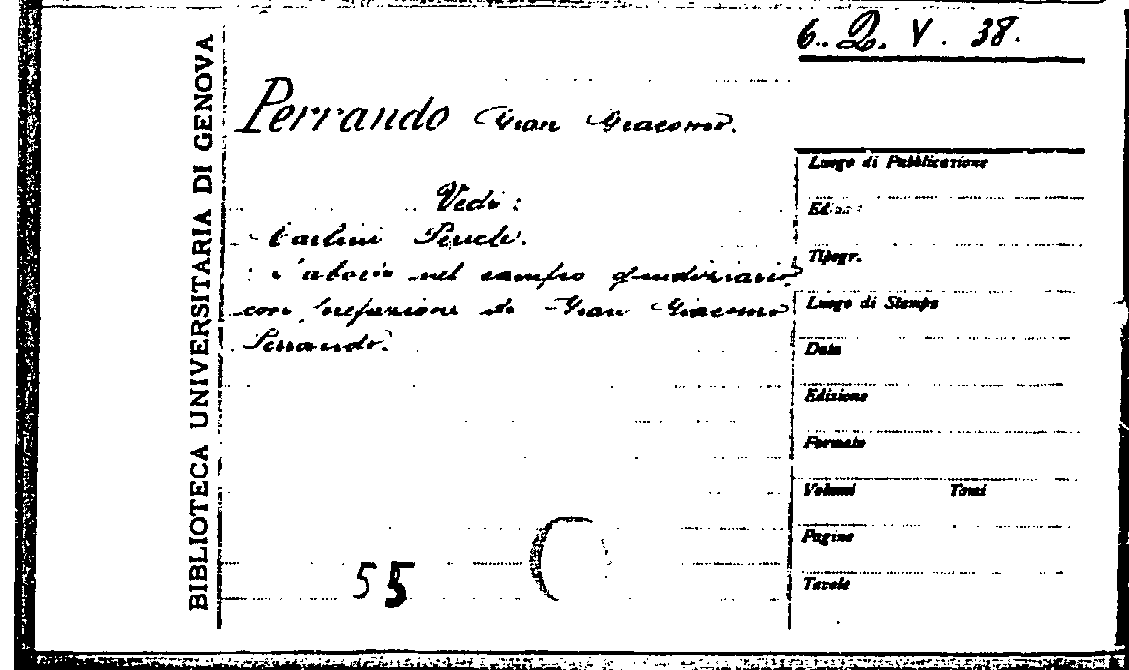 6. Q. V. 38.
BIBLIOTECA UNIVERSITARIA DI GENOVA
Perrando Gian Giacomo.
Vedi:
Carlini
nel campo giudiziario
con prefazione di Gian Giacomo
Perrando.
55
Luogo di Pubblicazione
Tipogr.
Luogo di Stampa
Data
Edizione
Formato
Volumi Tomi
Pagine
Tavole